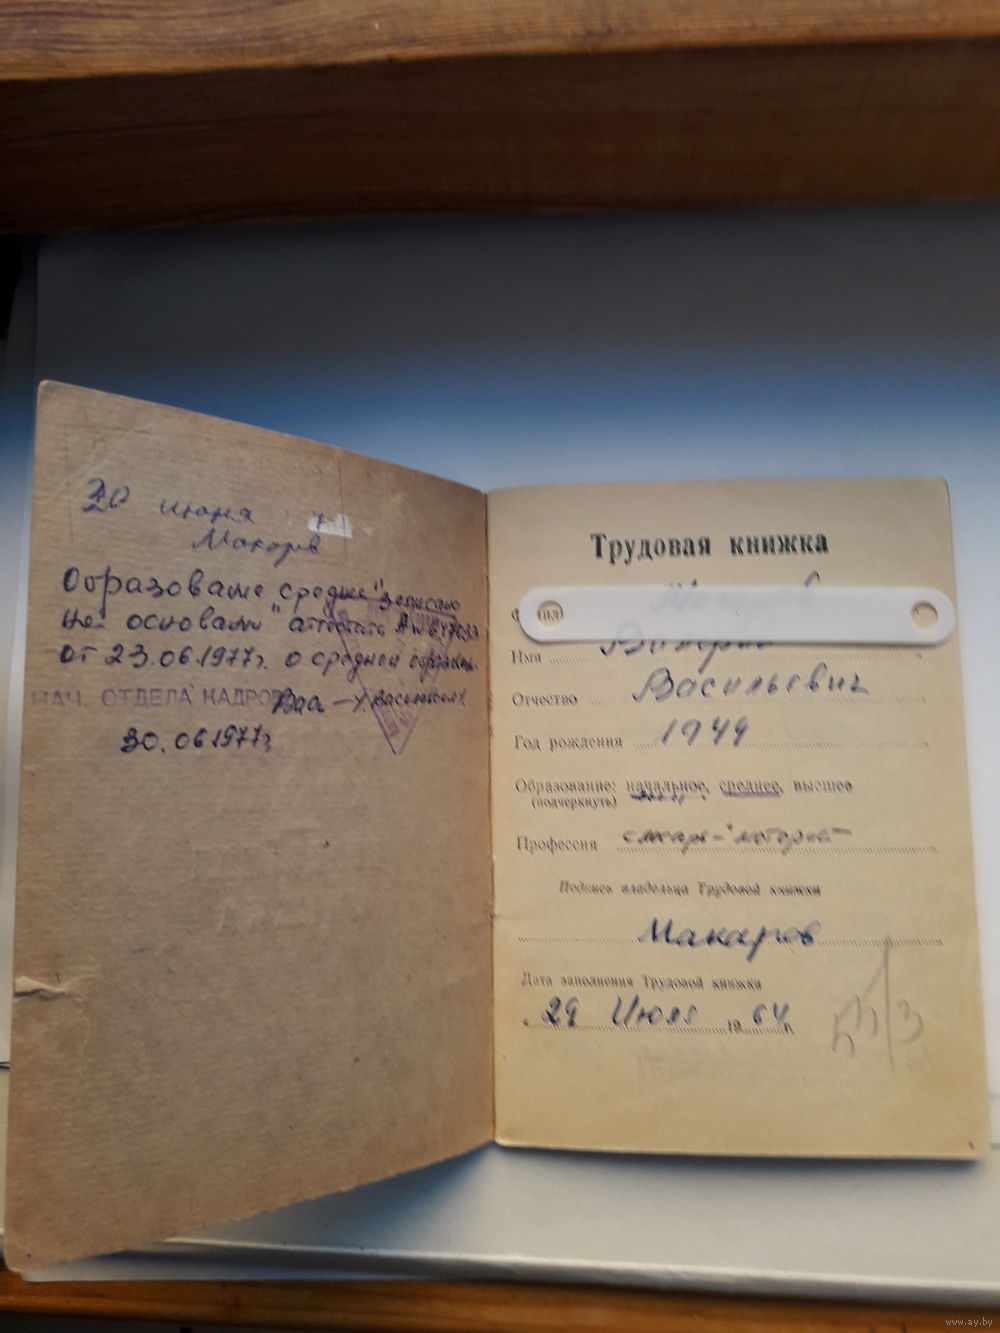 30 июня
Макаров
Образование среднее" записано
на основании "аттестата А №
от 23.06.1977г. о среднем образован.
НАЧ. ОТДЕЛА КАДРОВ
30.06 1977г.
Трудовая книжка
Имя
Отчество Васильевич
Год рождения 1949
Образование: начальное, среднее, высшее
(подчеркнуть)
Профессия слесарь-моторист
Подпись владельца Трудовой книжки
Макаров
Дата заполнения Трудовой книжки
"29 Июля 1964 г.
www.ay.by